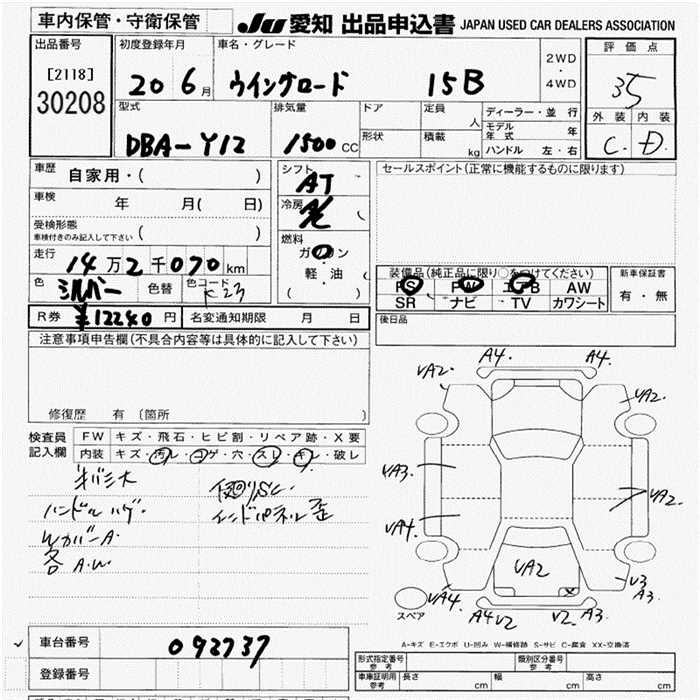 車内保管・守衛保管
JU 愛知 出品申込書 JAPAN USED CAR DEALERS ASSOCIATION
出品番号
[2118]
30208
初度登録年月
20 6月
車名・グレード
ウイングロード 15B
2WD
・
4WD
評価点
3.5
外装 内装
C. D.
型式
DBA-Y12
排気量
1500 CC
ドア
形状
定員
人
積載
kg
ディーラー・並行
モデル年式 年
ハンドル 左・右
車歴 自家用・( )
車検 年 月( 日)
受検形態
車検付きのみ記入して下さい ( )
走行 14万2千070km
色 シルバー
色替
色コード K23
シフト AT
冷房 AC
燃料
ガソリン
・
軽油
( )
セールスポイント(正常に機能するものに限ります)
装備品(純正品に限り○をつけてください)
PS PW エアB AW
SR ナビ TV カワシート
新車保証書
有・無
後日品
R券 ¥12240円
名変通知期限 月 日
注意事項申告欄(不具合内容等は具体的に記入して下さい)
修復歴 有 (箇所 )
検査員記入欄
FW キズ・飛石・ヒビ割・リペア跡・X要
内装 キズ・汚レ・コゲ・穴・スレ・キレ・破レ
キバミ大
ハンドルハゲ
Wカバー A
各 A.W
インパネル歪
VA2. A4. A4. VA2.
VA3. VA2.
VA4.
VA2
VA4. A4 V2 V2 A3. V3 A3.
スペア
A-キズ E-エクボ U-凹み W-補修跡 S-サビ C-腐食 XX-交換済
車台番号 092737
登録番号
形式指定番号
参考
類別区分番号
参考
車庫証明用
参考
長さ cm 幅 cm 高さ cm